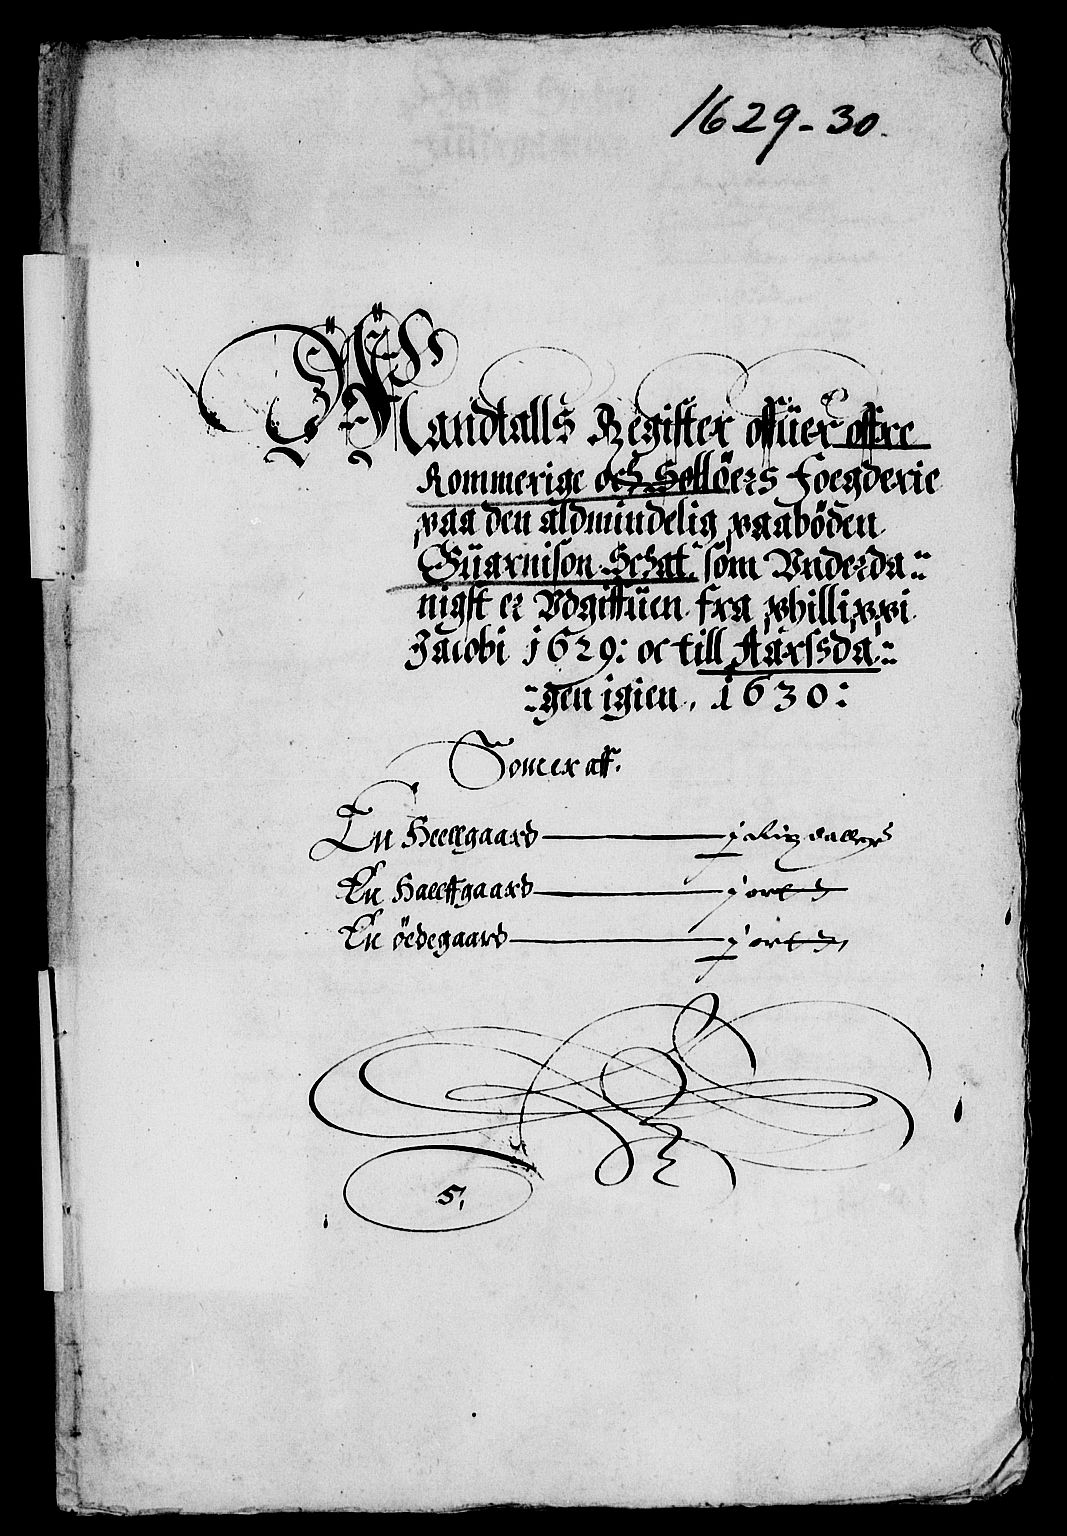 1629-30.
Mandtalls Register offuer offre
Rommerige och Solløers Foegderie
paa den aldmindelig paabøden
Guarnison Schat, som Vnderda=
nigst er Vdgiffuen fra Phillippi
Jacobi 1629: oc till Aarssda=
=gen igien. 1630:
Somer aff.
En Heelgaard j
En Halffgaard j ort
En ödegaard j ort
5,